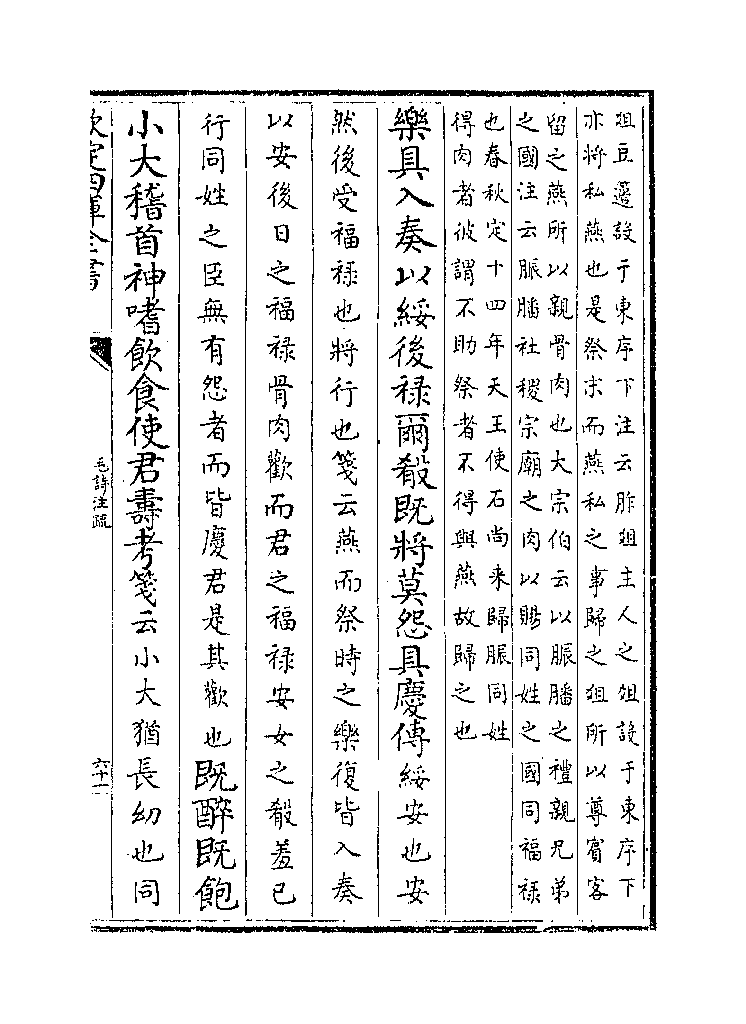 俎豆籩設于東序下注云胙俎主人之俎設于東序下
亦將私燕也是祭末而燕私之事歸之俎所以尊賓客
留之燕所以親骨肉也大宗伯云以脤膰之禮親兄弟
之國注云脤膰社稷宗廟之肉以賜同姓之國同福禄
也春秋定十四年天王使石尚来歸脤同姓
得肉者彼謂不助祭者不得與燕故歸之也
樂具入奏以綏後禄爾殽既將莫怨具慶傳綏安也安
然後受福禄也將行也箋云燕而祭時之樂復皆入奏
以安後日之福禄骨肉歡而君之福禄安女之殽羞已
行同姓之臣無有怨者而皆慶君是其歡也既醉既飽
小大稽首神嗜飲食使君壽考箋云小大猶長幼也同
欽定四庫全書
毛詩注疏
六十一